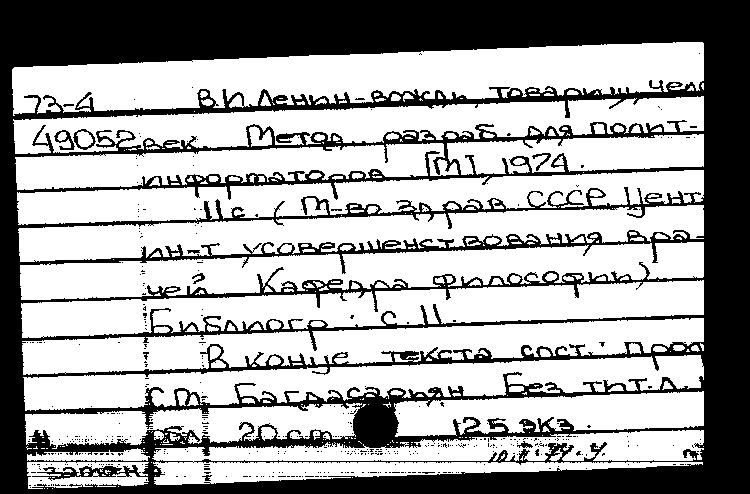 73-4 В.И. Ленин - вождь, товарищ, чело
49052 век. Метод. разраб. для полит-
информаторов. [М], 1974.
11 с. (М-во здрав. СССР. Цент.
ин-т усовершенствования вра-
чей Кафедра философии)
Библиогр.: с. 11.
В конце текста сост.: проф
С.М. Багдасарьян Без тит. л. и
обл 20 см 125 экз.
замена